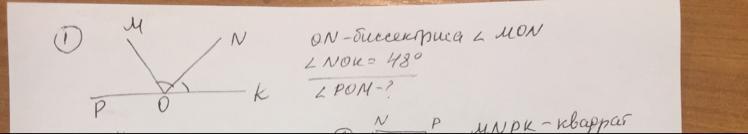 ①
M
N
P
O
K
ON-биссектриса ∠ MON
∠NOK = 48°
∠POM-?
N P
MNPK-кваррат